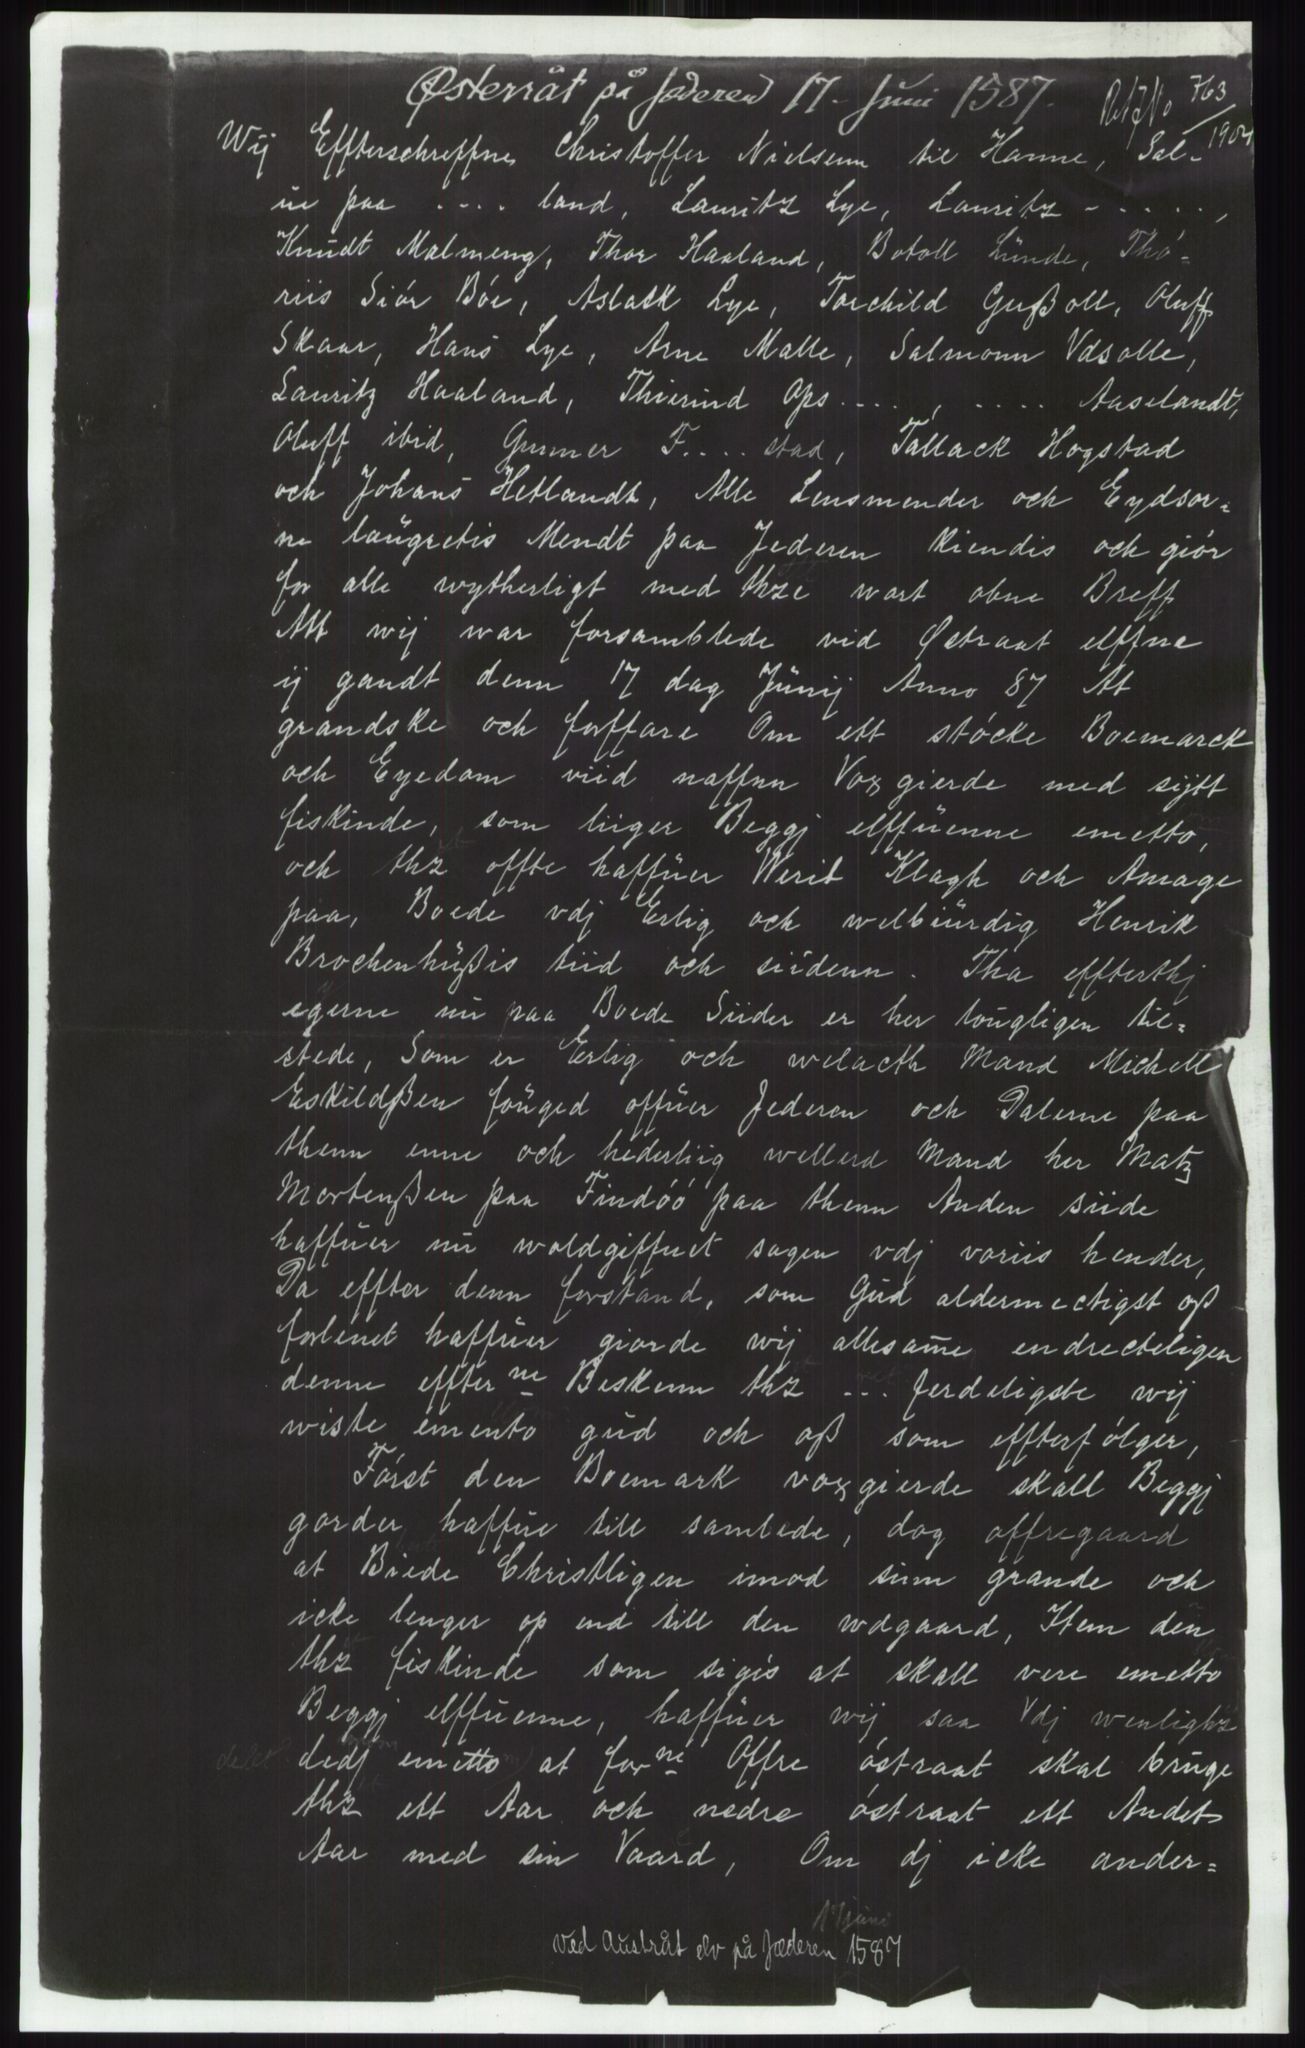 Østerråt på Jæderen 17. Juni 1587.
763
1904
Wij Effterschreffne Christoffer Nielsenn til Hanne, Sal-
ue paa .... land, Lauritz Lye, Lauritz - . . . . . ,
Knudt Malmeng, Thor Haaland, Botoll Lünde, Thó-
riis Siór Bóe, Aslack Lye, Torchild Gußoll, Oluff
Skaar, Hans Lye, Arne Malle, Salmonn Vdsolle,
Lauritz Haaland, Thierind Ops . . . . , ..... Aaselandt,
Oluff ibid, Gunner F.... stad, Tallack Hogstad
och Johans Hetlandt, Alle Lensmender och Eydsor=
ne laügretis Mendt paa Jederen kiendis och giór
for alle wytherligt med thze wort obne Breff
Att wij war forsamblede vid Østraat elffne
ij gandt denn 17 dag Jünij Anno 87 At
grandske och forffare Om ett stócke Boemarck
och Eyedom viid naffnn Voxgierde med sijtt
fiskinde, som liiger Beggj elffüenne emetto,
och thz offte haffüer Werit Klagh och Amage
paa, Boede vdj Erlig och welbüürdig Henrik
Brochenhüßis tiid och siidenn. Tha effterthj
egerne nü paa Boede Siider er her lougligen til=
stede, Som er Erlig och welacth Mand Michell
Eskildßen foüged offüer Jederen och Dalerne paa
thenn enne och hederliig wellerd Mand her Matz
Mortenßen paa Findóó paa thenn Anden siide
haffüer nü woldgiffuet sagen vdj voriis hender,
Da effter denn forstand, som Gud aldermectigst oß
forlenet haffüer giorde wij allesam̄e endrecteligen
denne effter ne Beskenn thz ... ferdeligste wij
wiste emento güd och oß som effterfólger,
Fórst den Boemark voxgierde skall Beggj
gorder haffüe till samlede, dog offregaard
at Biede Christligen imod sinn grande och
icke lenger op end till den wdgaard, Item den
thz fiskinde som sigis at skall vere emetto
Beggj elffüenne, haffüer wij saa Vdj wenlighz
dedj emetto at for ne Offre óstraat skal brüge
thz ett Aar och nedre óstraat ett Andet
Aar med sin Vaard, Om dj icke ander=
17 juni
Ved Austråt elv på Jæderen 1587